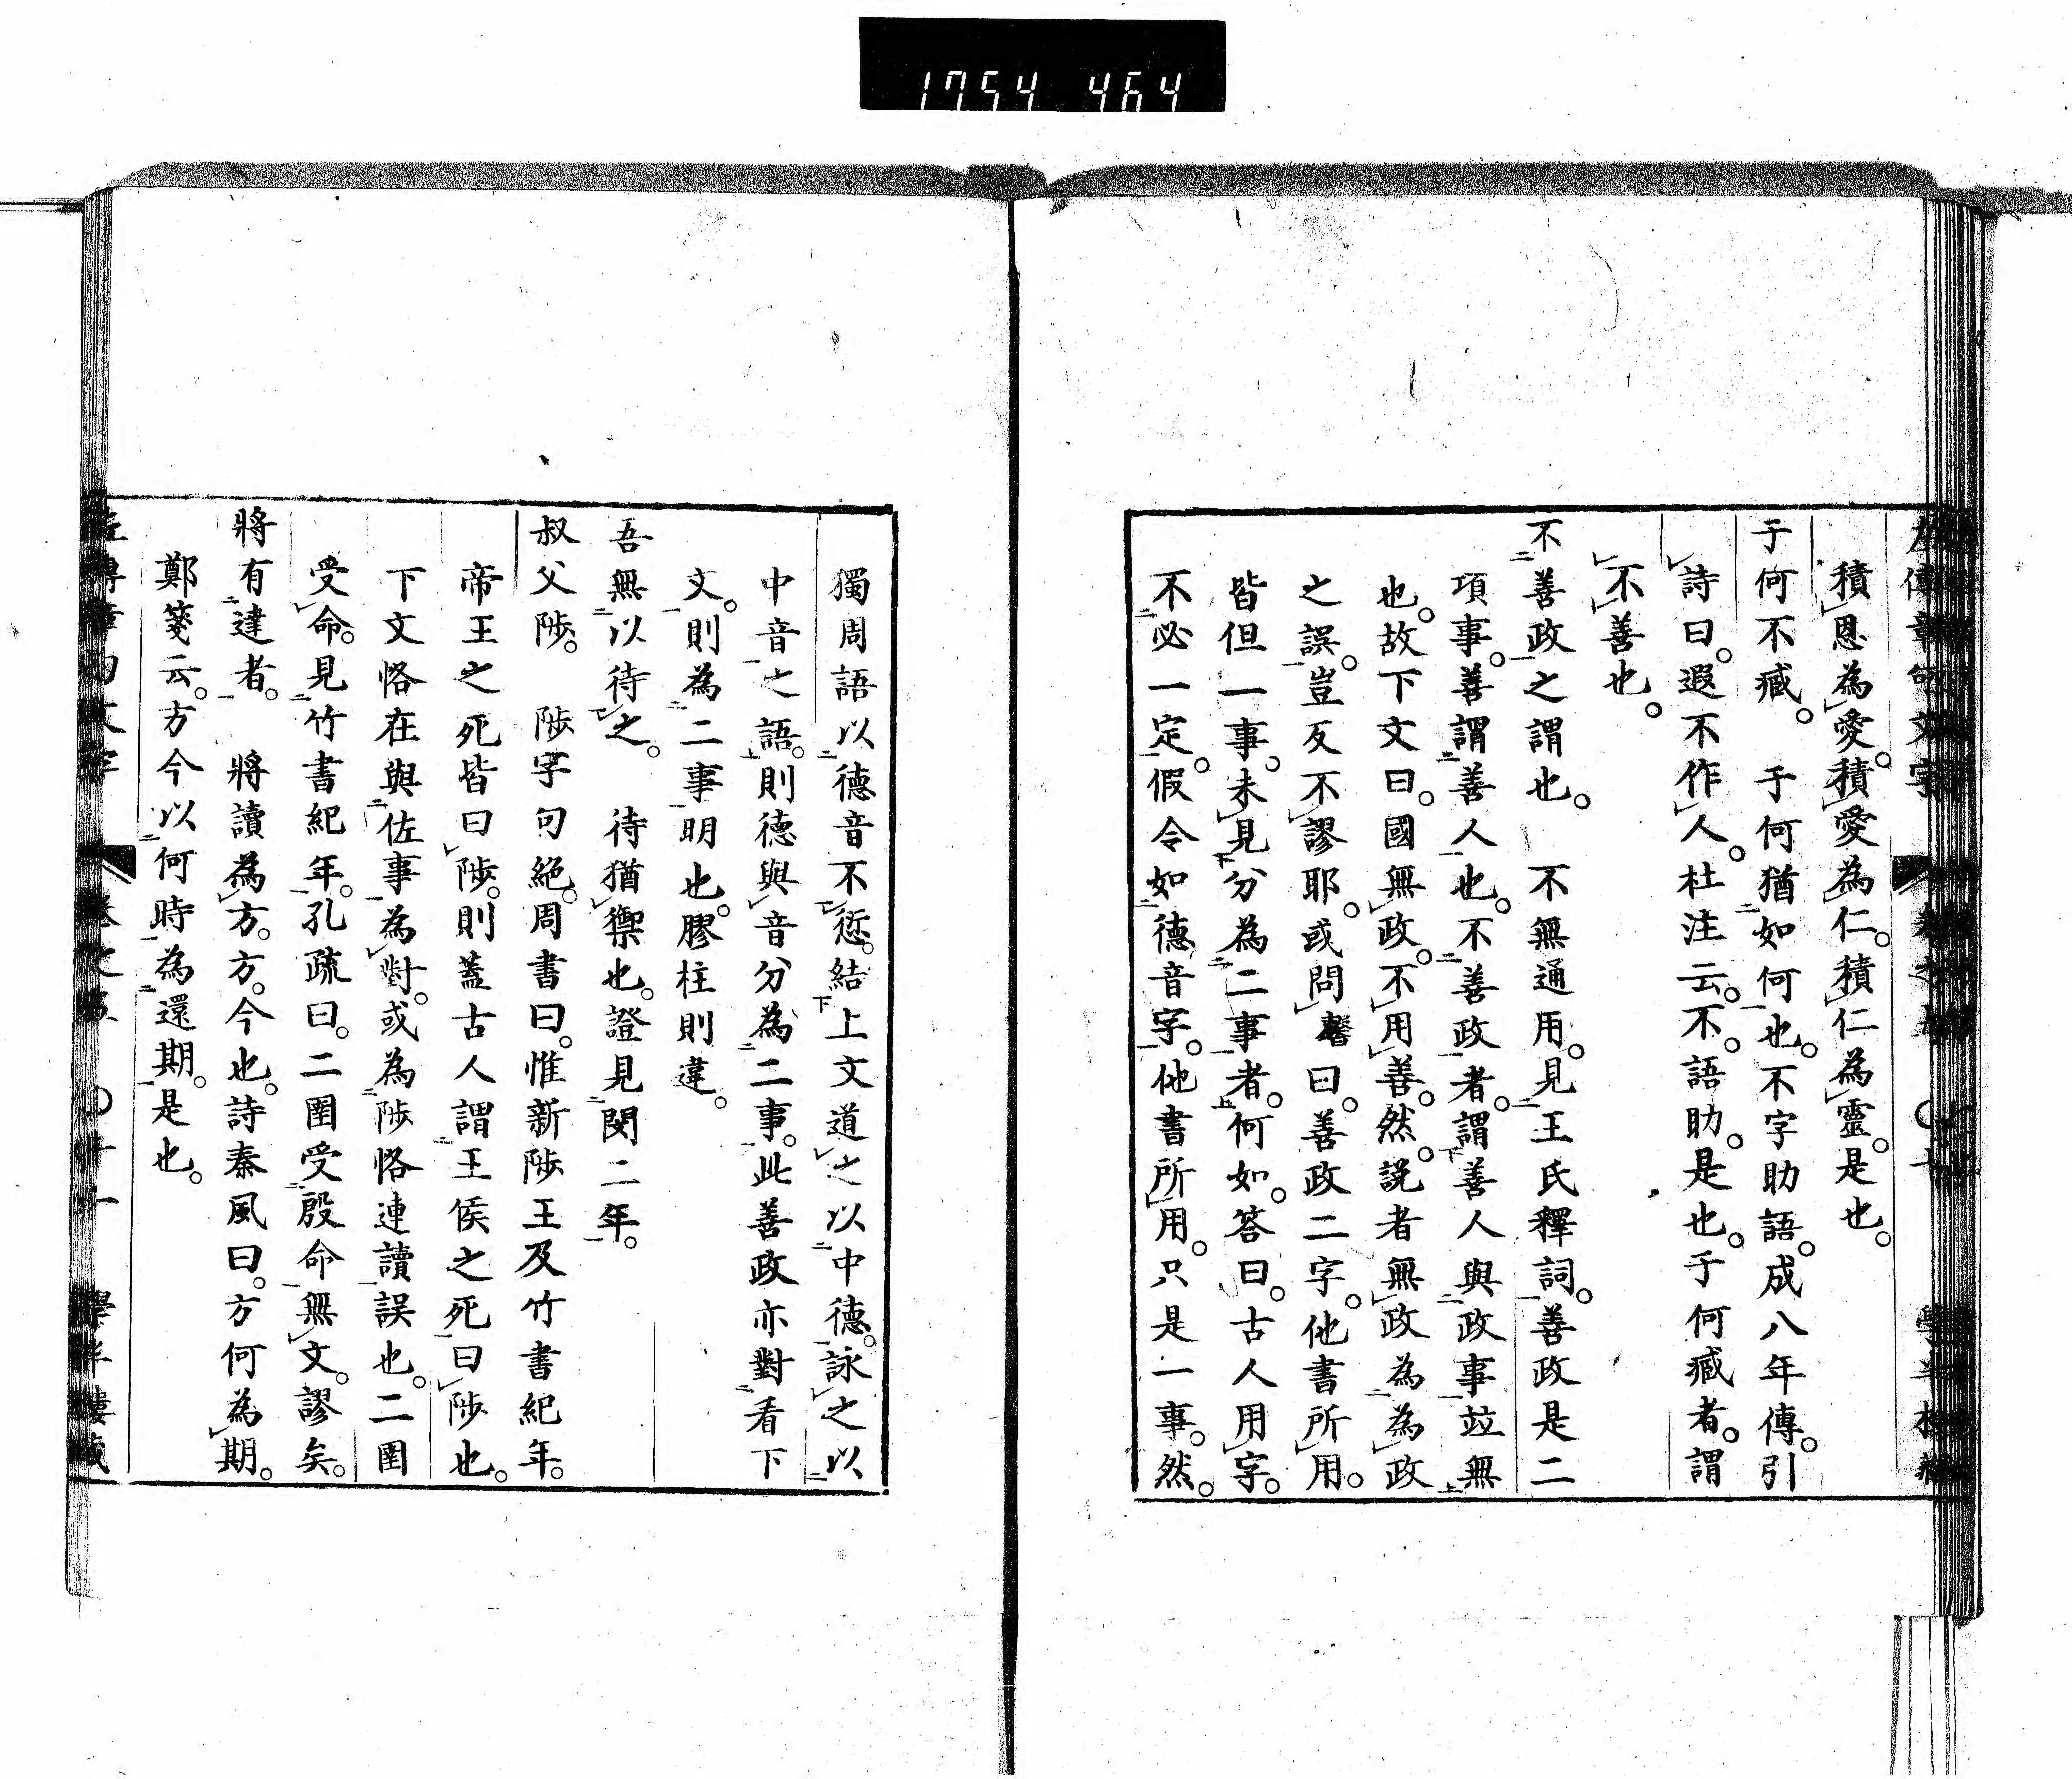 1754 464
左傳章句文字 卷之五 學半樓藏
積恩為愛。積愛為仁。積仁為靈。是也。
于何不臧。 于何猶如何也。不字助語。成八年傳。引
詩曰。遐不作人。杜注云。不。語助。是也。于何臧者。謂
不善也。
不善政之謂也。 不無通用。見王氏釋詞。善政是二
項事。善謂善人也。不善政者。謂善人與政事竝無
也。故下文曰。國無政。不用善。然。説者無政為為政
之誤。豈反不謬耶。或問礬曰。善政二字。他書所用。
皆但一事。未見分為二事者。何如。答曰。古人用字。
不必一定。假令如德音字。他書所用。只是一事。然。
獨周語以德音不愆。結上文道之以中德。詠之以
中音之語。則德與音分為二事。此善政亦對看下
文。則為二事明也。膠柱則違。
吾無以待之。 待猶禦也。證見閔二年。
叔父陟。 陟字句絕。周書曰。惟新陟王及竹書紀年。
帝王之死皆曰陟。則蓋古人謂王侯之死曰陟也。
下文恪在與佐事為對。或為陟恪連讀誤也。二圉
受命。見竹書紀年。孔疏曰。二圉受殷命無文。謬矣。
將有達者。 將讀為方。方。今也。詩秦風曰。方何為期。
鄭箋云。方今以何時為還期。是也。
左傳章句文字 卷之五 〇廿一 學半樓藏